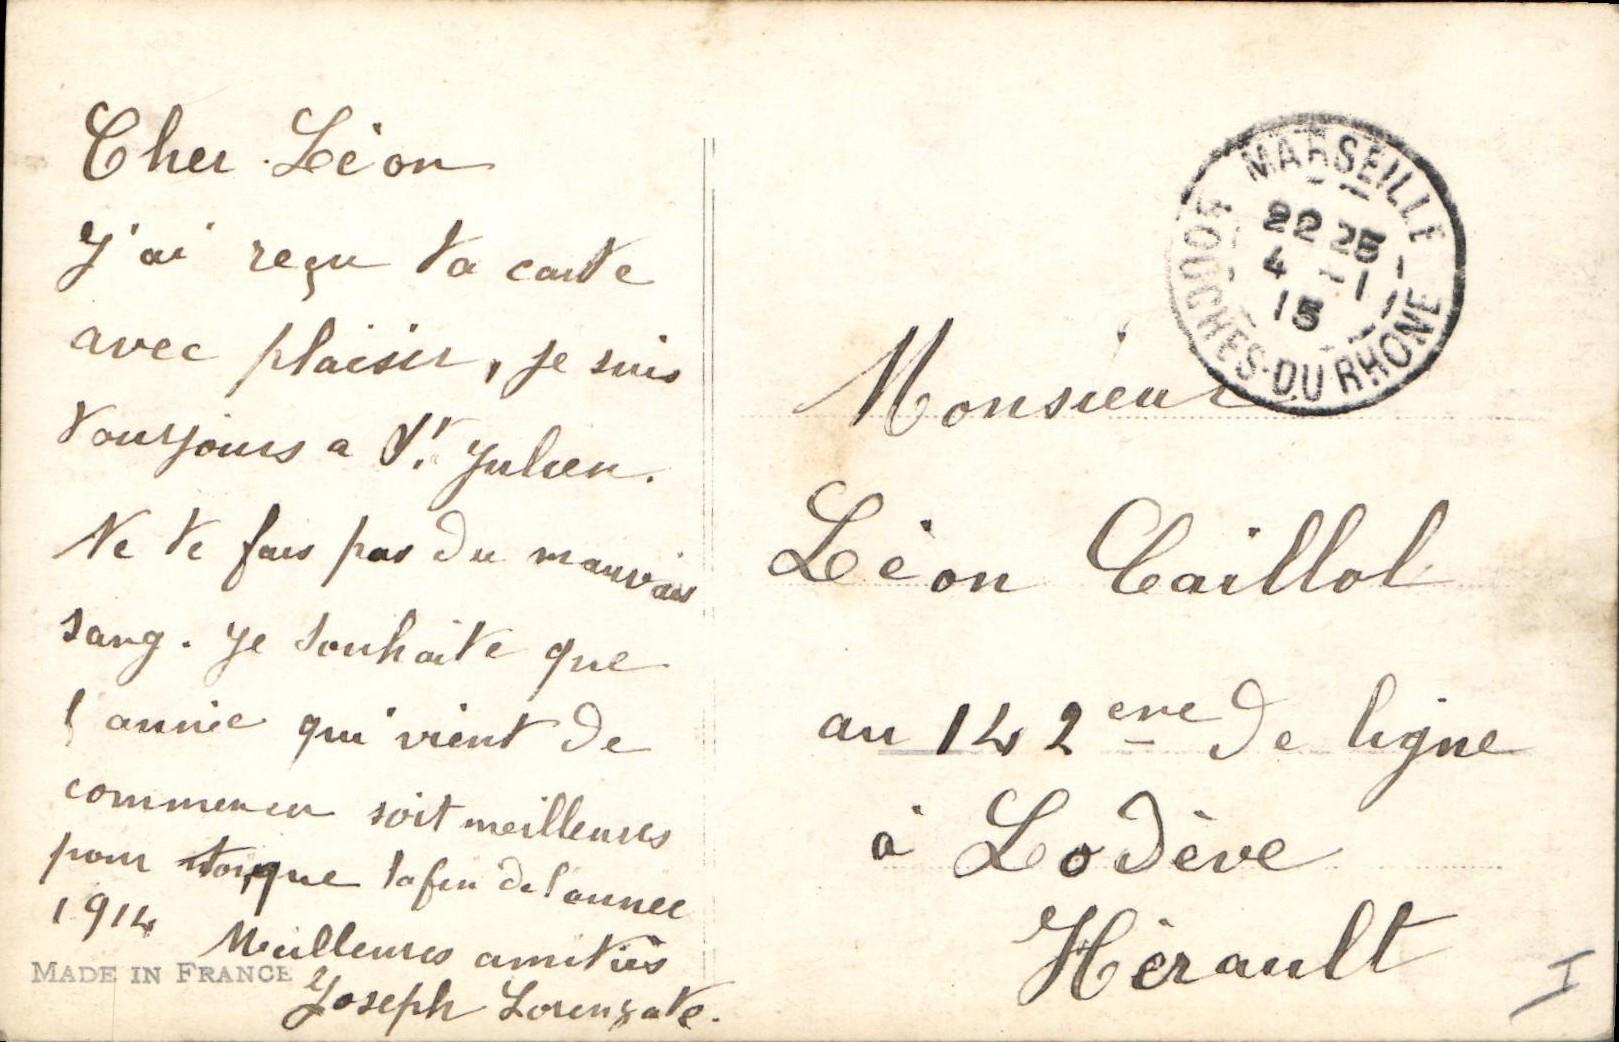 Cher Léon
J'ai reçu ta carte
avec plaisir, je suis
tourjours a St. Julien.
Ne te fais pas du mauvais
sang. Je souhaite que
l'année qui vient de
commencer soit meilleures
pour toi, que la fin de l'année
1914 Meilleures amitiés
Joseph Lorenzate.
MADE IN FRANCE
MARSEILLE
22 25
4 - 1
15
BOUCHES-DU-RHONE
Monsieur
Léon Caillol
au 142 eme de ligne
à Lodève
Hérault
I